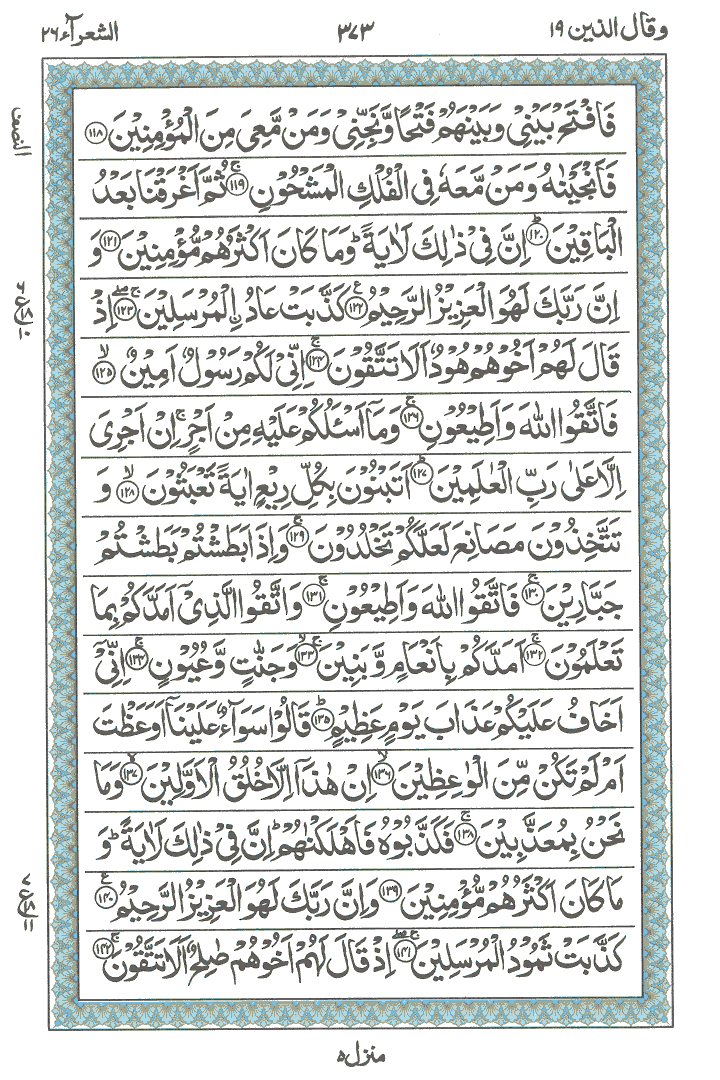 وقال الذين ١٩
٣٧٣
الشعرآء ٢٦
فَافْتَحْ بَيْنِيْ وَبَيْنَهُمْ فَتْحًا وَّنَجِّنِيْ وَمَنْ مَّعِيَ مِنَ الْمُؤْمِنِيْنَ ۝١١٨
فَاَنْجَيْنٰهُ وَمَنْ مَّعَهٗ فِي الْفُلْكِ الْمَشْحُوْنِ ۚ۝١١٩ ثُمَّ اَغْرَقْنَا بَعْدُ
الْبَاقِيْنَ ؕ۝١٢٠ اِنَّ فِيْ ذٰلِكَ لَاٰيَةً ؕ وَمَا كَانَ اَكْثَرُهُمْ مُّؤْمِنِيْنَ ۝١٢١ وَ
اِنَّ رَبَّكَ لَهُوَ الْعَزِيْزُ الرَّحِيْمُ ࣖ۝١٢٢ كَذَّبَتْ عَادُ ِۨالْمُرْسَلِيْنَ ۚۖ۝١٢٣ اِذْ
قَالَ لَهُمْ اَخُوْهُمْ هُوْدٌ اَلَا تَتَّقُوْنَ ۚ۝١٢٤ اِنِّيْ لَكُمْ رَسُوْلٌ اَمِيْنٌ ۙ۝١٢٥
فَاتَّقُوا اللّٰهَ وَاَطِيْعُوْنِ ۚ۝١٢٦ وَمَاۤ اَسْـَٔلُكُمْ عَلَيْهِ مِنْ اَجْرٍ ۚ اِنْ اَجْرِيَ
اِلَّا عَلٰى رَبِّ الْعٰلَمِيْنَ ؕ۝١٢٧ اَتَبْنُوْنَ بِكُلِّ رِيْعٍ اٰيَةً تَعْبَثُوْنَ ۙ۝١٢٨ وَ
تَتَّخِذُوْنَ مَصَانِعَ لَعَلَّكُمْ تَخْلُدُوْنَ ۚ۝١٢٩ وَاِذَا بَطَشْتُمْ بَطَشْتُمْ
جَبَّارِيْنَ ۚ۝١٣٠ فَاتَّقُوا اللّٰهَ وَاَطِيْعُوْنِ ۚ۝١٣١ وَاتَّقُوا الَّذِيْۤ اَمَدَّكُمْ بِمَا
تَعْلَمُوْنَ ۚ۝١٣٢ اَمَدَّكُمْ بِاَنْعَامٍ وَّبَنِيْنَ ۚۙ۝١٣٣ وَجَنّٰتٍ وَّعُيُوْنٍ ۚ۝١٣٤ اِنِّيْۤ
اَخَافُ عَلَيْكُمْ عَذَابَ يَوْمٍ عَظِيْمٍ ؕ۝١٣٥ قَالُوْا سَوَآءٌ عَلَيْنَاۤ اَوَعَظْتَ
اَمْ لَمْ تَكُنْ مِّنَ الْوٰعِظِيْنَ ۙ۝١٣٦ اِنْ هٰذَاۤ اِلَّا خُلُقُ الْاَوَّلِيْنَ ۙ۝١٣٧ وَمَا
نَحْنُ بِمُعَذَّبِيْنَ ۚ۝١٣٨ فَكَذَّبُوْهُ فَاَهْلَكْنٰهُمْ ؕ اِنَّ فِيْ ذٰلِكَ لَاٰيَةً ؕ وَ
مَا كَانَ اَكْثَرُهُمْ مُّؤْمِنِيْنَ ۝١٣٩ وَاِنَّ رَبَّكَ لَهُوَ الْعَزِيْزُ الرَّحِيْمُ ࣖ۝١٤٠
كَذَّبَتْ ثَمُوْدُ الْمُرْسَلِيْنَ ۚۖ۝١٤١ اِذْ قَالَ لَهُمْ اَخُوْهُمْ صٰلِحٌ اَلَا تَتَّقُوْنَ ۚ۝١٤٢
النصف
منزل ٥